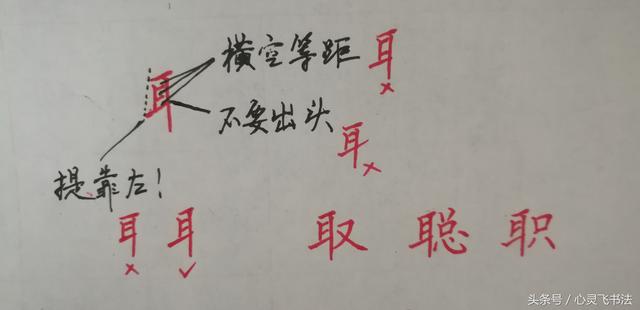 耳 横空等距 耳×
不要出头
耳×
提靠左！
耳× 耳✓ 取 聪 职
头条号／心灵飞书法